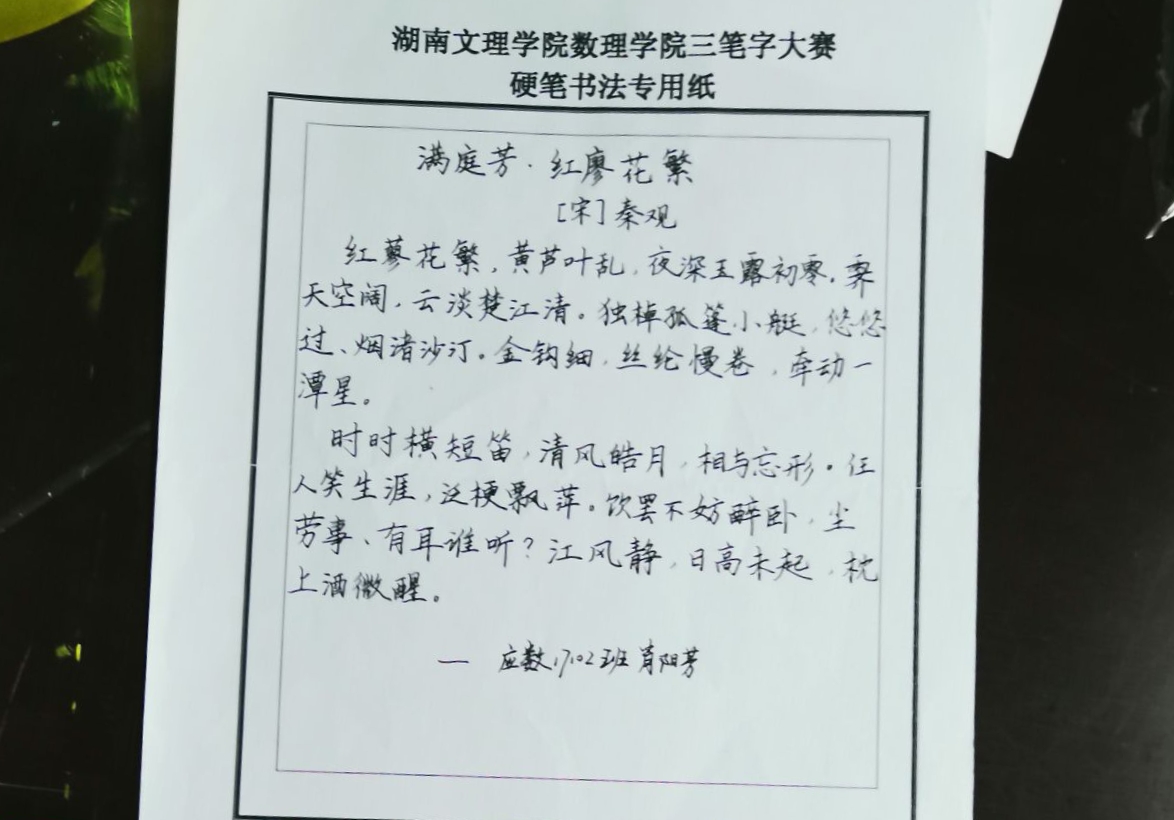 湖南文理学院数理学院三笔字大赛
硬笔书法专用纸
满庭芳·红廖花繁
[宋]秦观
红蓼花繁，黄芦叶乱，夜深玉露初零。霁
天空阔，云淡楚江清。独棹孤篷小艇，悠悠
过、烟渚沙汀。金钩细，丝纶慢卷，牵动一
潭星。
时时横短笛，清风皓月，相与忘形。任
人笑生涯，泛梗飘萍。饮罢不妨醉卧，尘
劳事、有耳谁听？江风静，日高未起，枕
上酒微醒。
— 应数1702班 肖阳芳